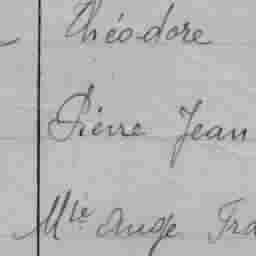 Théodore
Pierre Jean
Mle Ange Fra